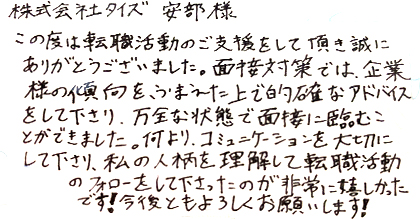 株式会社タイズ 安部様
この度は転職活動のご支援をして頂き誠に
ありがとうございました。面接対策では、企業
様の傾向をふまえた上で的確なアドバイス
をして下さり、万全な状態で面接に臨むこ
とができました。何より、コミュニケーションを大切に
して下さり、私の人柄を理解して転職活動
のフォローをして下さったのが非常に嬉しかった
です!今後ともよろしくお願いします!